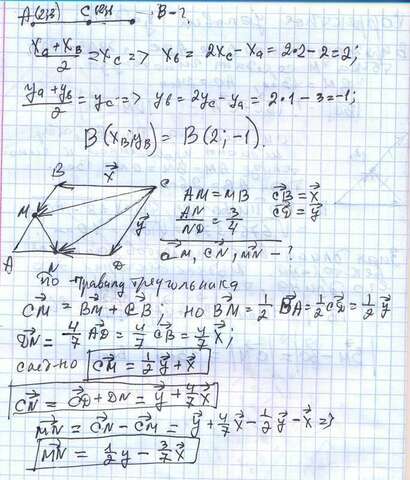 A(2;3) C(2;1) B-?
(xa + xB)/2 = xc => xв = 2xc - xa = 2·2 - 2 = 2;
(ya + yв)/2 = yc => yв = 2yc - ya = 2·1 - 3 = -1;
B(xB; yB) = B(2; -1).
B x⃗ C
M AM = MB C⃗B = x⃗
y⃗ AN/ND = 3/4 C⃗D = y⃗
A N D CM, CN, MN - ?
По правилу треугольника
C⃗M = B⃗M + C⃗B; но B⃗M = 1/2 B⃗A = 1/2 C⃗D = 1/2 y⃗
D⃗N = 4/7 A⃗D = 4/7 C⃗B = 4/7 x⃗;
C⃗M = 1/2 y⃗ + x⃗
C⃗N = C⃗D + D⃗N = y⃗ + 4/7 x⃗
M⃗N = C⃗N - C⃗M = y⃗ + 4/7 x⃗ - 1/2 y⃗ - x⃗ =>
M⃗N = 1/2 y - 3/7 x⃗